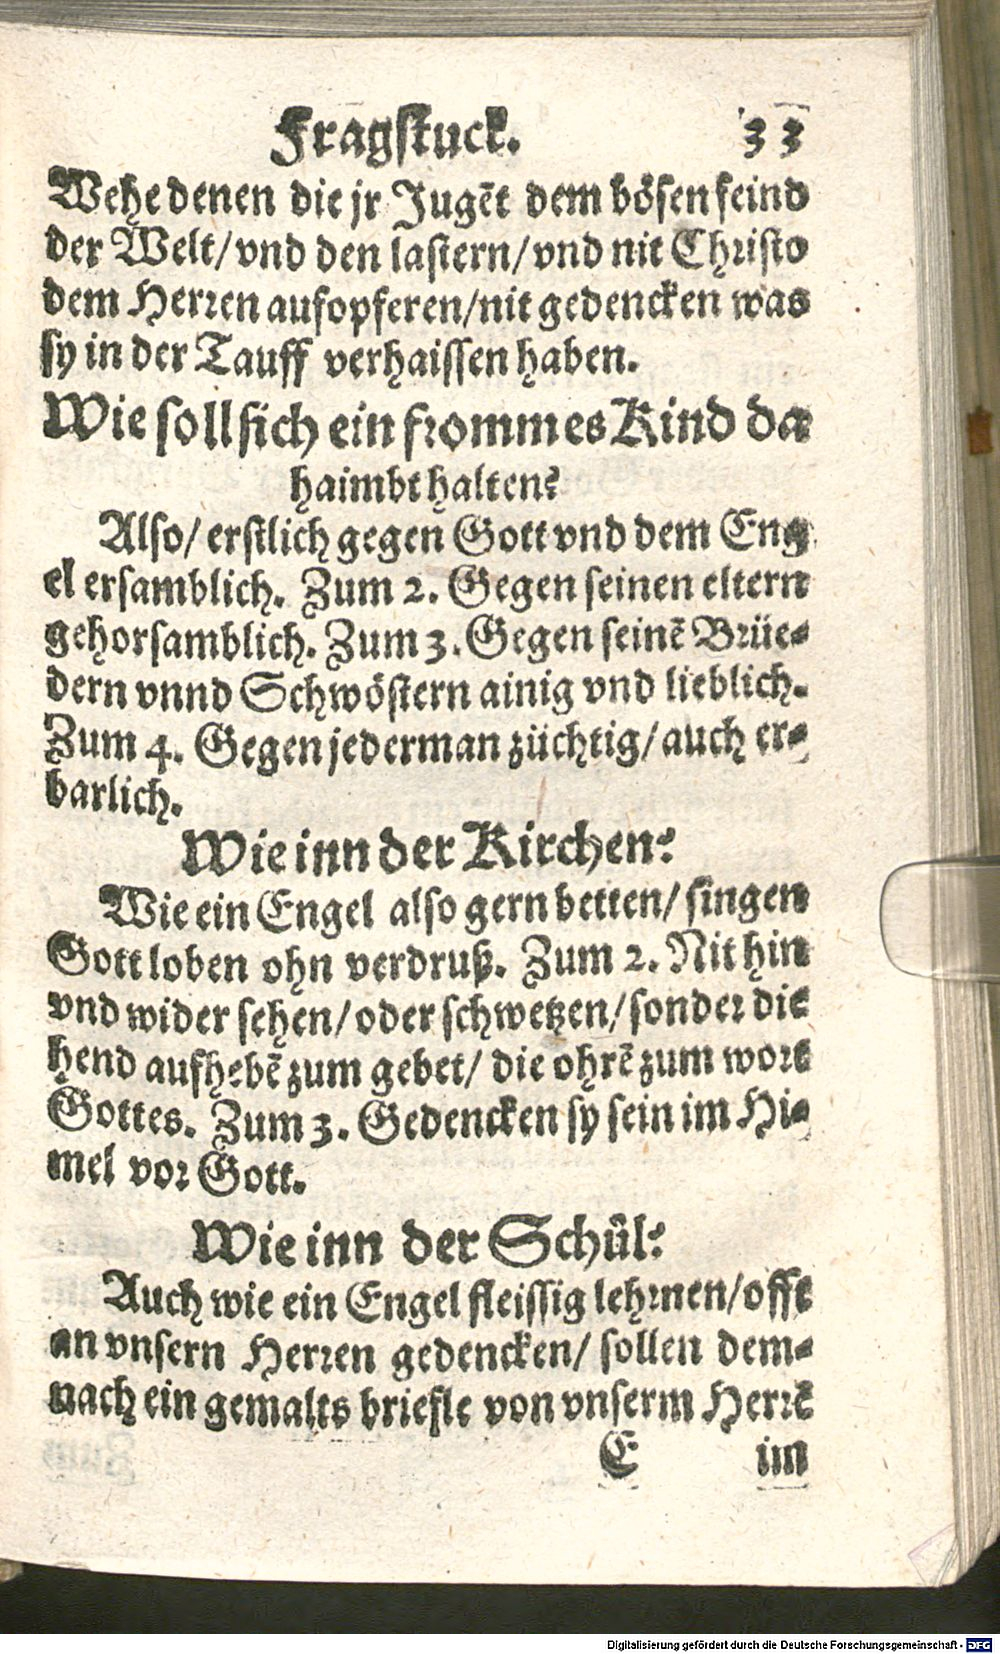 Fragstuck. 33
Wehe denen die jr Jugẽt dem bösen feind
der Welt/ vnd den lastern/ vnd nit Christo
dem Herren aufopferen/ nit gedencken was
sy in der Tauff verhaissen haben.
Wie soll sich ein frommes Kind da
haimbt halten?
Also/ erstlich gegen Gott vnd dem Eng
el ersamblich. Zum 2. Gegen seinen eltern
gehorsamblich. Zum 3. Gegen seinẽ Brüe-
dern vnnd Schwöstern ainig vnd lieblich.
Zum 4. Gegen jederman züchtig/ auch er-
barlich.
Wie inn der Kirchen?
Wie ein Engel also gern betten/ singen
Gott loben ohn verdruß. Zum 2. Nit hin
vnd wider sehen/ oder schwetzen/ sonder die
hend aufhebẽ zum gebet/ die ohrẽ zum wort
Gottes. Zum 3. Gedencken sy sein im Hi-
mel vor Gott.
Wie inn der Schůl?
Auch wie ein Engel fleissig lehrnen/ offt
an vnsern Herren gedencken/ sollen dem-
nach ein gemalts briefle von vnserm Herrẽ
E im
Digitalisierung gefördert durch die Deutsche Forschungsgemeinschaft - DFG